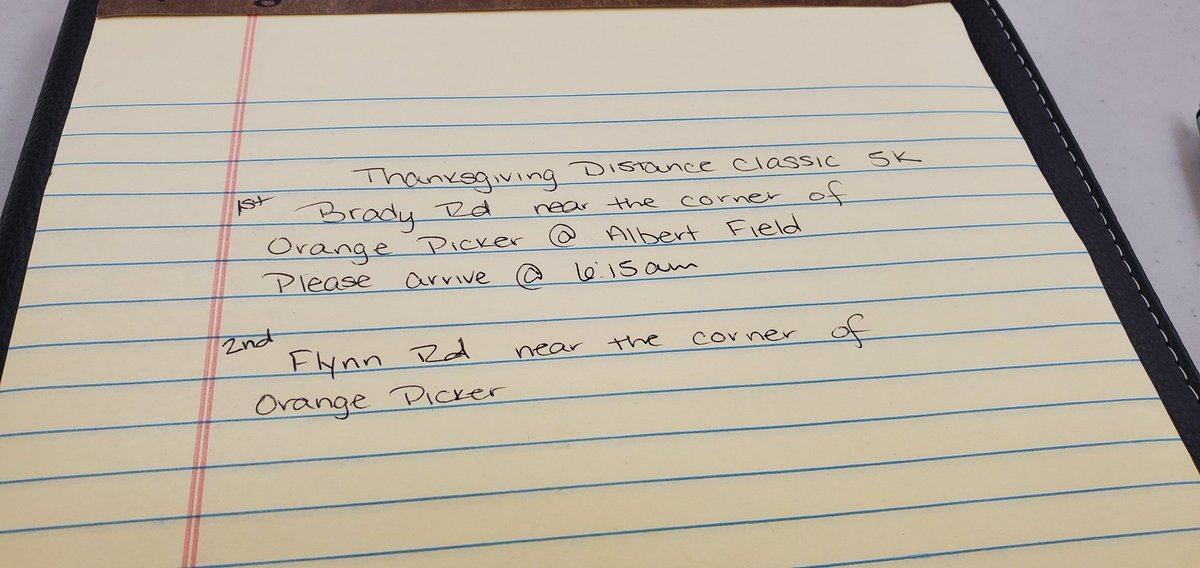 Thanksgiving Distance Classic 5K
1st Brady Rd near the corner of
Orange Picker @ Albert Field
Please arrive @ 6:15am
2nd Flynn Rd near the corner of
Orange Picker